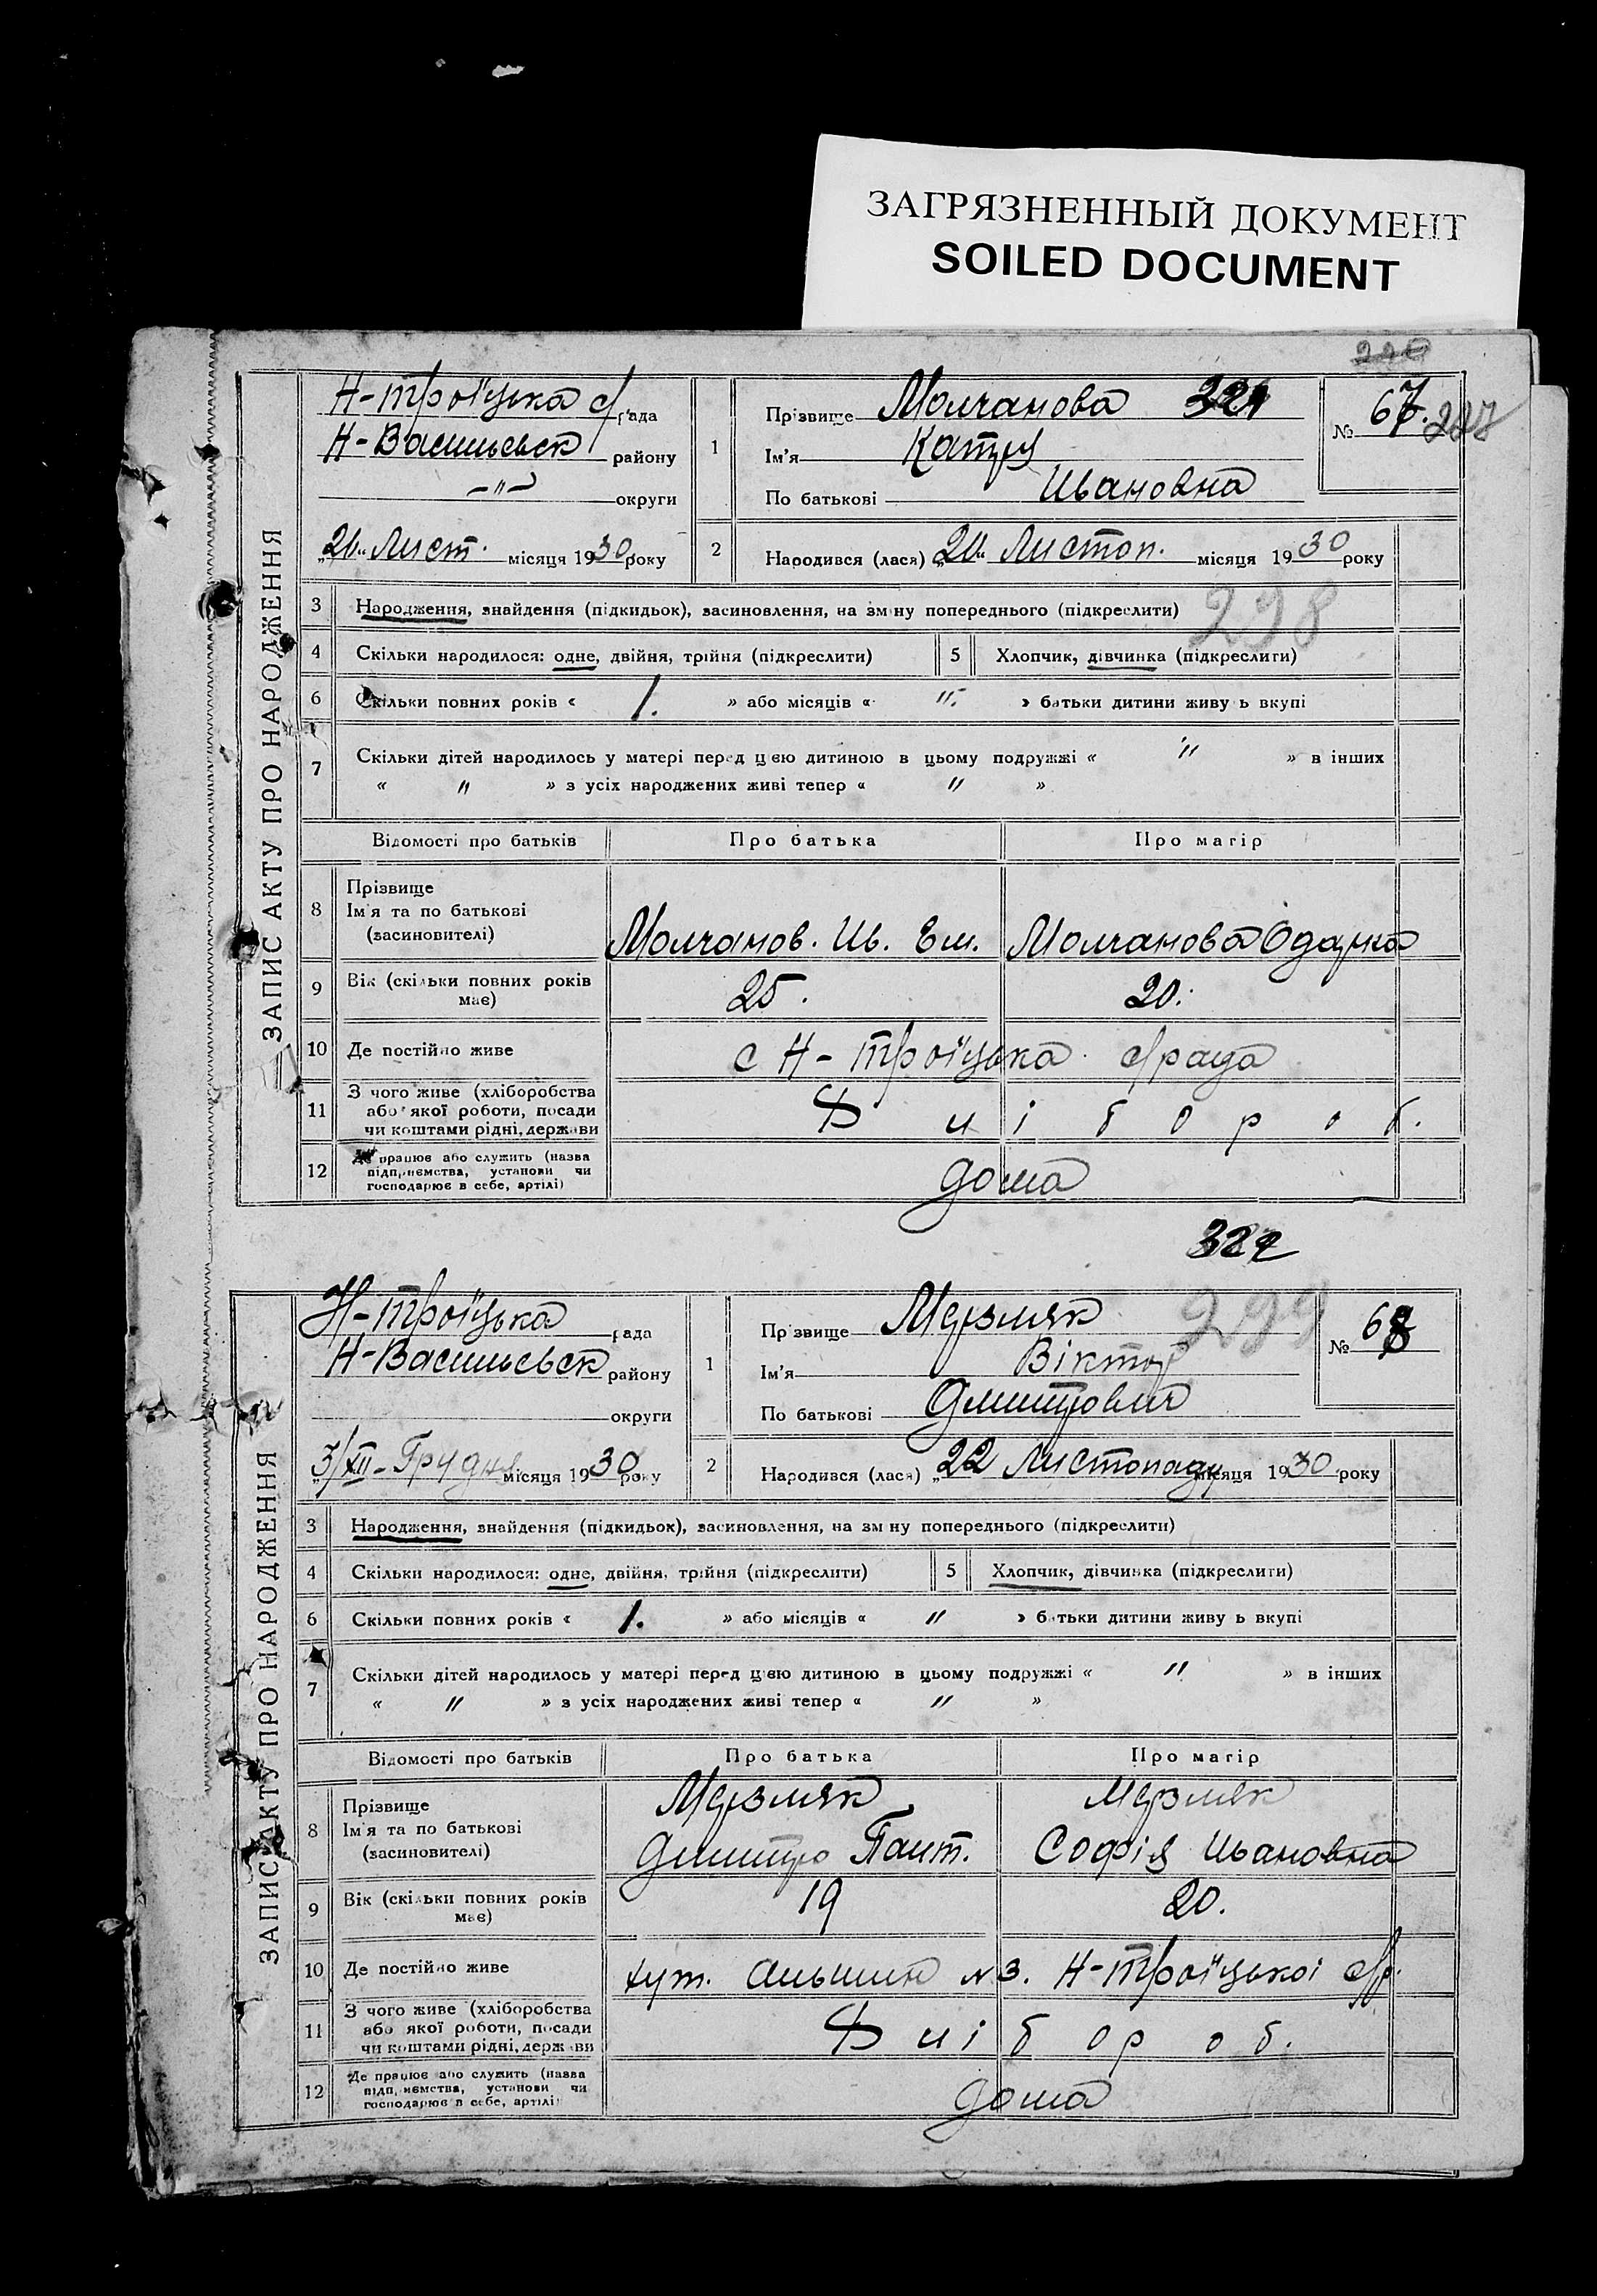 ЗАГРЯЗНЕННЫЙ ДОКУМЕНТ
SOILED DOCUMENT
220
ЗАПИС АКТУ ПРО НАРОДЖЕННЯ
Н-Троїцька с/рада
Н-Васильевск району
—"— округи
1
Прізвище Молчанова 321
Ім'я Катря
По батькові Ивановна
№ 67. 227
„ Лист. місяця 1930 року
2
Народився (лася) „ Листоп. місяця 1930 року
3 Народження, знайдення (підкидьок), засиновлення, на зміну попереднього (підкреслити)
298
4 Скільки народилося: одне, двійня, трійня (підкреслити)
5 Хлопчик, дівчинка (підкреслити)
6 Скільки повних років « 1. » або місяців « " » батьки дитини живуть вкупі
7 Скільки дітей народилось у матері перед цією дитиною в цьому подружжі « " » в інших
« " » з усіх народжених живі тепер « " »
Відомості про батьків Про батька Про матір
8 Прізвище
Ім'я та по батькові
(засиновителі)
Молчанов. Ив. Ем. Молчанова Одарка
9 Вік (скільки повних років
має)
25. 20.
10 Де постійно живе с Н-Троїцька с/рада
11 З чого живе (хліборобства
або якої роботи, посади
чи коштами рідні, держави
Хлібороб.
12 Де працює або служить (назва
підприємства, установи чи
господарює в себе, артілі)
дома
322
ЗАПИС АКТУ ПРО НАРОДЖЕННЯ
Н-Троїцька рада
Н-Васильевск району
округи
1
Прізвище Мерзляк 299
Ім'я Віктор
По батькові Дмитрович
№ 68
„3/XII-Грудня місяця 1930 року
2
Народився (лася) „22 Листопаду місяця 1930 року
3 Народження, знайдення (підкидьок), засиновлення, на зміну попереднього (підкреслити)
4 Скільки народилося: одне, двійня, трійня (підкреслити)
5 Хлопчик, дівчинка (підкреслити)
6 Скільки повних років « 1. » або місяців « " » батьки дитини живуть вкупі
7 Скільки дітей народилось у матері перед цією дитиною в цьому подружжі « " » в інших
« " » з усіх народжених живі тепер « " »
Відомості про батьків Про батька Про матір
8 Прізвище
Ім'я та по батькові
(засиновителі)
Мерзляк Мерзляк
Дмитро Пант. Софія Ивановна
9 Вік (скільки повних років
має)
19 20.
10 Де постійно живе хут. №3. Н-Троїцької с/р.
11 З чого живе (хліборобства
або якої роботи, посади
чи коштами рідні, держави
Хлібороб.
12 Де працює або служить (назва
підприємства, установи чи
господарює в себе, артілі)
дома